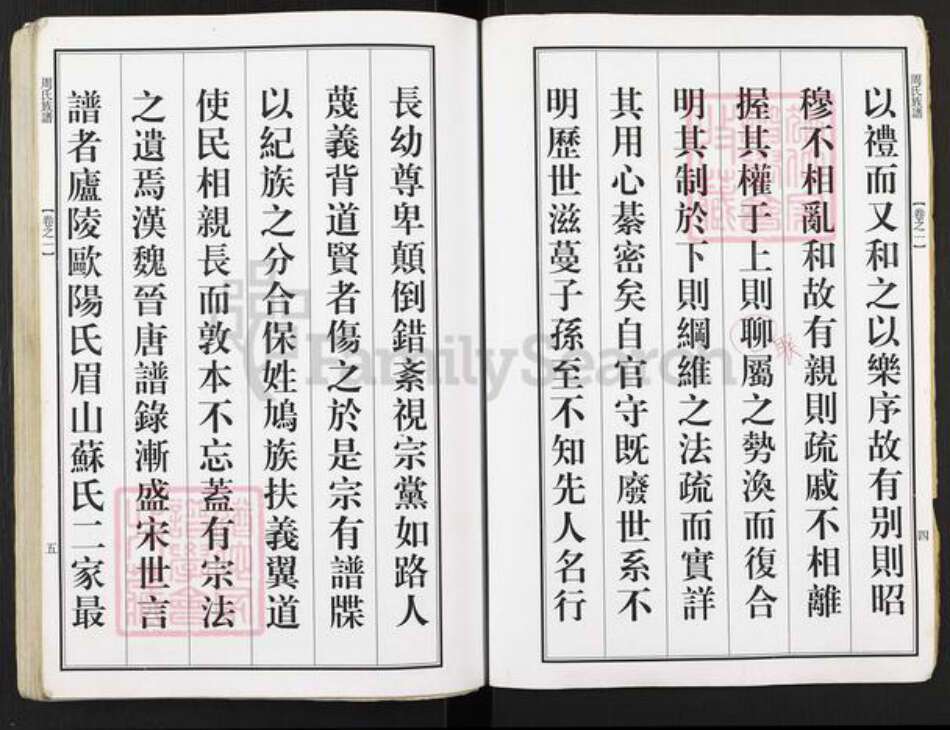 周氏族譜
【卷之一】
四
以禮而又和之以樂序故有别則昭
穆不相亂和故有親則疏戚不相離
握其權于上則聊屬之勢渙而復合
明其制於下則綱維之法疏而實詳
其用心綦密矣自官守既廢世系不
明歷世滋蔓子孫至不知先人名行
長幼尊卑顛倒錯紊視宗黨如路人
蔑義背道賢者傷之於是宗有譜牒
以紀族之分合保姓鳩族扶義翼道
使民相親長而敦本不忘蓋有宗法
之遺焉漢魏晉唐譜錄漸盛宋世言
譜者廬陵歐陽氏眉山蘇氏二家最
周氏族譜
【卷之一】
五
FamilySearch